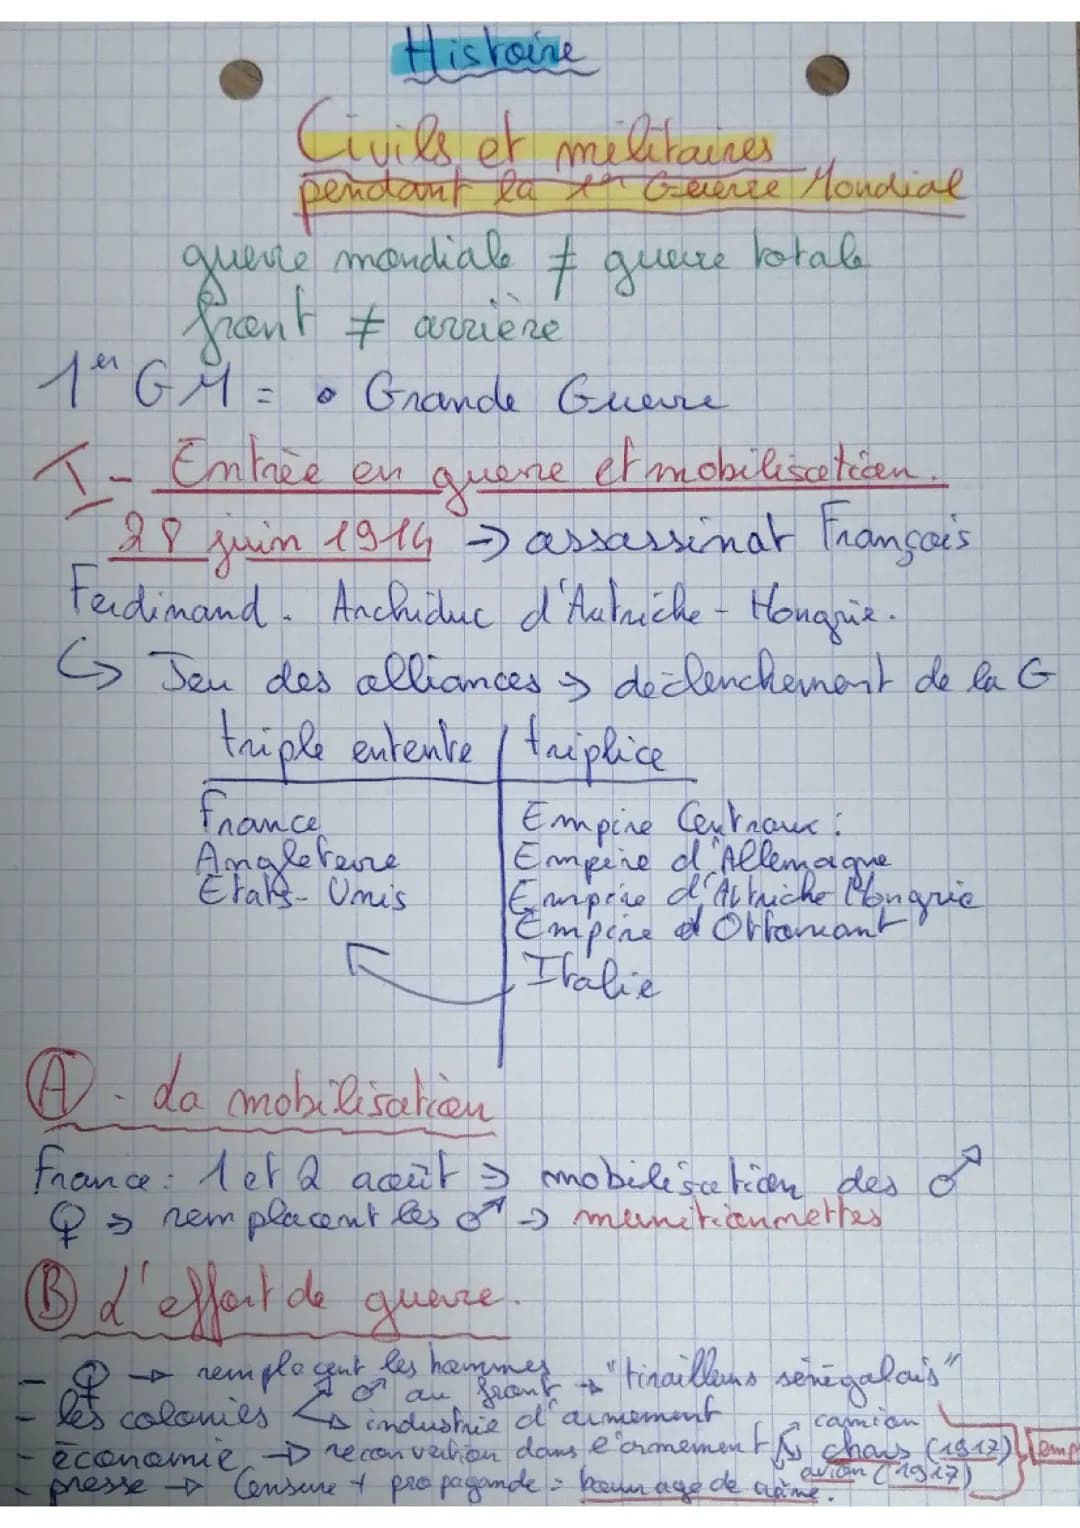 Histoire
Civils et militaires
pendant la 1er Guerre Mondial
guerre mondiale ≠ guerre totale
front ≠ arrière
1er GM = • Grande Guerre
I - Entrée en guerre et mobilisation.
28 juin 1914 → assassinat François
Ferdinand. Archiduc d'Autriche-Hongrie.
↳ Jeu des alliances → déclenchement de la G
triple entente / triplice
France
Empire Centraux :
Angleterre
Empire d'Allemagne
Etats-Unis
Empire d'Autriche Hongrie
Empire d'Ottomant
Italie
A - La mobilisation
France : 1 et 2 août → mobilisation des ♂
♀ → remplacent les ♂ → munitionnettes
B L'effort de guerre.
- ♀ → remplacent les hommes
♂ au front → "tirailleurs sénégalais"
- les colonies → industrie d'armement
- économie → reconvertion dans l'armement
camion
chars (1917)
avion (1917)
- presse → Censure + propagande = bourrage de crâne.